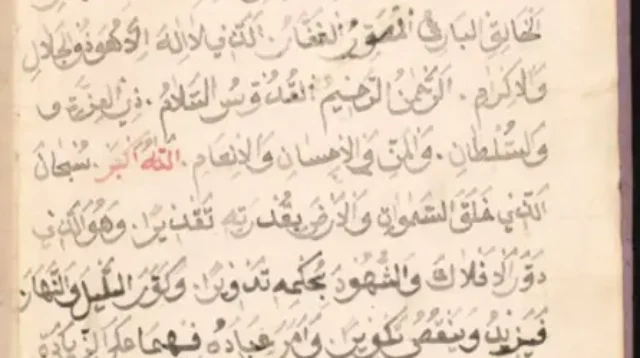 الخالق البارئ المصور الغفار. الذي لا اله الا هو ذو الجلال
والاكرام. الرحمن الرحيم القدوس السلام. ذي العزة و
والسلطان. والمن والاحسان والانعام. الله اكبر. سبحان
الذي خلق السموات والارض بقدرته تقديرا. وهو الذي
دور الافلاك والشهود بحكمه تدويرا. وكور الليل والنهار
فيزيد وينقص تكويرا. وامر عباده فيهما على الزيادة